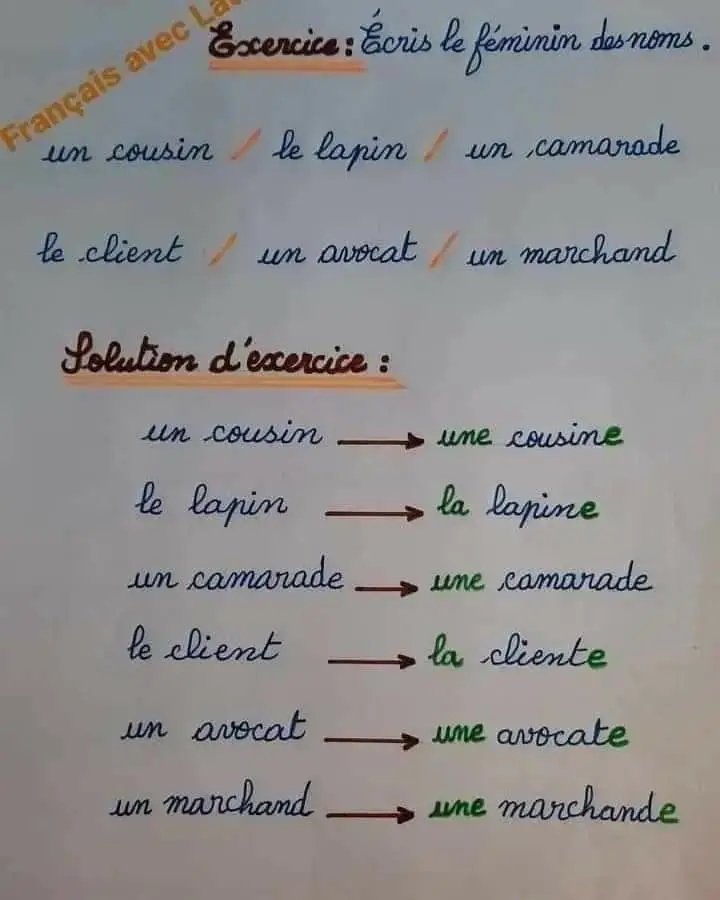 Français avec
Exercice : Écris le féminin des noms.
un cousin / le lapin / un camarade
le client / un avocat / un marchand
Solution d'exercice :
un cousin → une cousine
le lapin → la lapine
un camarade → une camarade
le client → la cliente
un avocat → une avocate
un marchand → une marchande